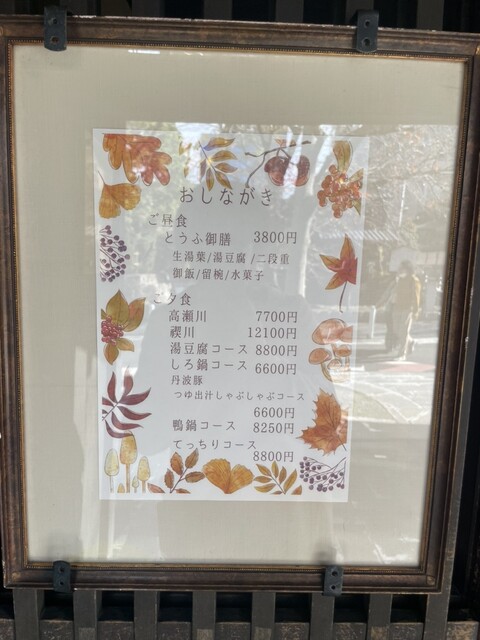 おしながき
ご昼食
とうふ御膳 3800円
生湯葉/湯豆腐/二段重
御飯/留椀/水菓子
ご夕食
高瀬川 7700円
禊川 12100円
湯豆腐コース 8800円
しろ鍋コース 6600円
丹波豚
つゆ出汁しゃぶしゃぶコース
6600円
鴨鍋コース 8250円
てっちりコース
8800円